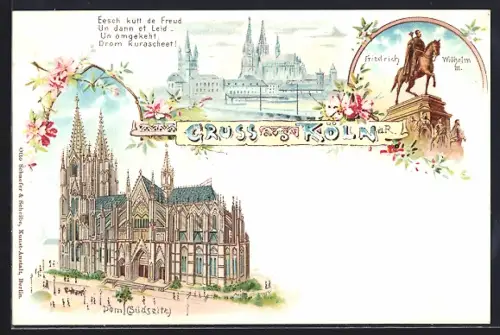 Eesch kütt de Freud
Un dann et Leid.
Un omgekeht
Drom Kurascheet!
Friedrich Wilhelm
III.
GRUSS aus KÖLN a.R.
Dom (Südseite)
Otto Schaefer & Scheibe, Kunst-Anstalt, Berlin.